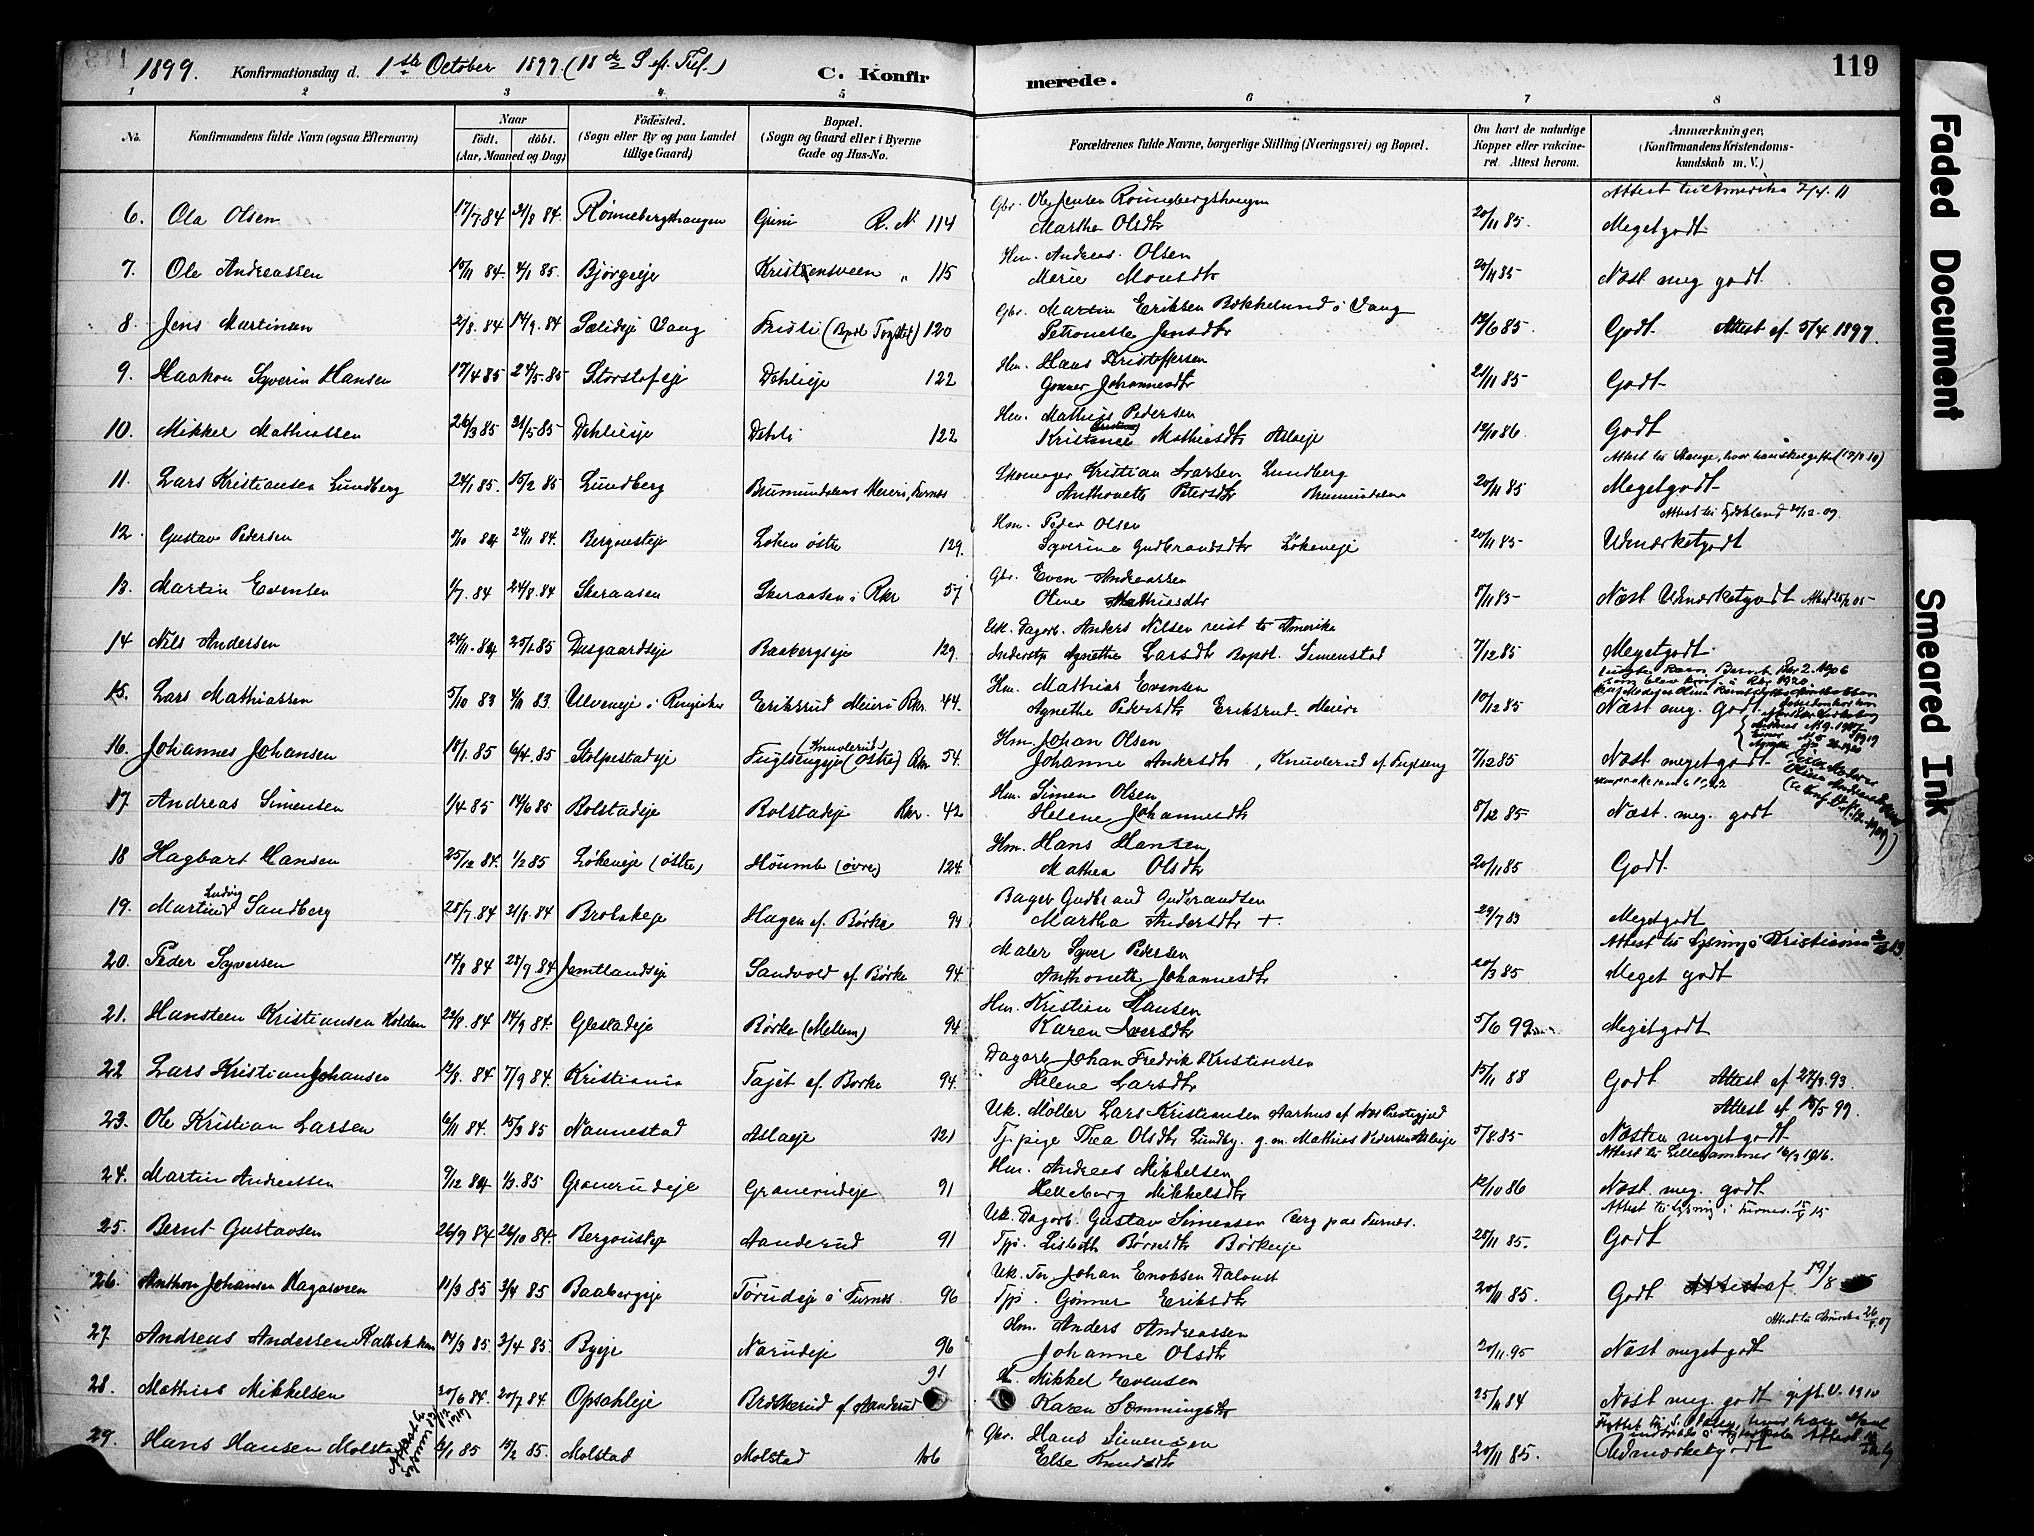 1899. Konfirmationsdag d. 1ste October 1899 (18de S. ef. Tref.) C. Konfirmerede. 119
1 2 3 4 5 6 7 8
No. Konfirmandens fulde Navn (ogsaa Efternavn) Naar født. døbt. (Aar, Maaned og Dag) Fødested. (Sogn eller By og paa Landet tillige Gaard) Bopæl. (Sogn og Gaard eller i Byerne Gade og Hus-No. Forældrenes fulde Navne, borgerlige Stilling (Næringsvei) og Bopæl. Om havt de naturlige Kopper eller vakcineret. Attest herom. Anmærkninger. (Konfirmandens Kristendomskundskab m. V.)
Attest til Amerika 2/4. 11
6. Ola Olsen 17/7 84 31/8 84. Rønnebergshaugen Grini R. N 114 Gbr. Ole Jensen Rønnebergshaugen
Martha Olsdtr 20/11 85. Megetgodt
7. Ole Andreassen 4/1 85. Bjørgeeje Kristiansveen „ 115 Hm. Andreas Olsen
Merie Monsdtr 20/11 85 Næst meg godt
8. Jens Martinsen 2/8. 84 14/9. 84 Sælideje Vang 120 Gbr. Martin Eriksen Bekkelund i Vang
Petronelle Jensdtr 19/6 85. Godt Attest af 5/4. 1897.
9. Haakon Syverin Hansen 17/4 85 24/5. 85 Storstofeje Dehlieje 122 Hm. Hans Kristoffersen
Gonner Johannesdtr 21/11 85 Godt
10. Mikkel Mathiassen 26/3 85 21/5 85 Dehlieje Dehli 122 Hm. Mathias Pedersen
Mathiasdtr Aslaeje 19/10 86 Godt
11. Lars Kristiansen Lundberg 24/1 85. 15/2 85 Lundberg Brumunddalens Meieri, Furnes Skomager Kristian Larsen Lundberg
Anthonette Petersdtr Brumunddalen 20/11 85 Megetgodt
12. Gustav Pedersen 8/10 84 24/11 84. Løken østre 129. Hm. Peder Olsen
Syverine Gudbrandsdtr Løkeneje 20/11 85 Udmærketgodt
13. Martin Evensen 1/7. 84 24/8. 84 Skeraasen Skeraasen i Rkr 57 Gbr. Even Andreassen
Oline Mathiasdtr 8/11 85 Næst Udmærketgodt
14 Nils Andersen 24/11. 84 25/1 85 Dusgaardseje Baabergseje 129. Uk. Dagarb. Anders Nilsen reist til Amerika
Agnethe Larsdtr Bopæl. Simenstad 7/12 85 Megetgodt
15. Lars Mathiassen 5/10 83 4/11 83. Ulveneje i Ringsaker Eriksrud Meieri Rkr. 44. Hm. Mathias Evensen
Agnethe Pedersdtr Eriksrud Meieri 10/12 85 Næst meg. godt
16. Johannes Johansen 18/1 85 6/4. 85 Stolpestadeje Fuglsengeje (østre) (Knuvlerud) Rkr 54. Hm. Johan Olsen
Johanne Andersdtr, Knuvlerud af Fuglseng 7/12 85 Næst megetgodt
17 Andreas Simensen 1/4 85 14/6 85 Bolstadeje Bolstadeje Rkr. 42 Hm. Simen Olsen
Helene Johannesdtr 8/12 85 Næst. meg. godt
18 Hagbart Hansen 25/12 84. 1/2 85 Løkeneje (østre) Houmb (øvre) 124. Hm. Hans Hansen
Mathea Olsdtr 20/11 85 Godt
19. Martin Ludvig Sandberg 25/7. 84 31/8 84 Hagen af Børke 94 Bager Gudbrand Gudbrandsen
Martha Andersdtr + 29/7 83 Megetgodt
Attest til Lysning i Kristiania
20. Peder Syversen 14/8 84 28/9 84 Jemtlandseje Sandvold af Børke 94. Maler Syver Pedersen
Anthonette Johannesdtr 20/3 85 Meget godt
21. Hansteen Kristiansen Holden 22/8. 84 14/9 84. Glestadeje Børke (Mellem) 94. Hm. Kristian Hansen
Karen Iversdtr 5/6 99 Megetgodt
22 Lars Kristian Johansen 12/8. 84 7/9 84. Kristiania Tajet af Børke 94. Dagarb Johan Fredrik Kristiansen
Helene Larsdtr 15/11 88 Godt Attest af 27/9. 93.
Attest af 15/5 99.
23. Ole Kristian Larsen 6/11 84. 15/3 85 Nannestad Aslaeje 121 Uk. Møller Lars Kristiansen Aarhus af Næs Prestegjeld
Tj. pige Thea Olsdtr Lundby. g. m. Mathias Pedersen Aslaeje 5/8. 85 Næsten megetgodt
Attest til Lillehammer 16/3 1916.
24. Martin Andreassen 9/12 84 1/3. 85 Granerudeje Granerudeje 91 Hm. Andreas Mikkelsen
Helleborg Mikkelsdtr 12/10 86 Næst. meg. godt
25. Bernt Gustavsen 26/9 84 26/10 84. Aanderud 91 Uk. Dagarb. Gustav Simensen Berg paa Furnes.
Tjp. Lisbeth Børresdtr Børkeeje 28/11 85. Godt
26. Anthon Johansen Hagasveen 11/3 85 3/4 85 Baabergeje Torudeje i Furnes. 96 Uk. Johan Enoksen
Tjp. Gønner Eriksdtr 20/11 85. Godt Attest af 19/8
27. Andreas Andersen 14/3 85 3/4 85. Byeje Narudeje 96 Hm. Anders Andreassen
Johanne Olsdtr 20/11. 95 Næst megetgodt
28. Mathias Mikkelsen 20/6 84. 20/7 84. Opsahleje Brøskerud af Aanderud 91 Mikkel Evensen
Karen Sæmmingsdtr 25/11 84 Næst meg. godt gift. V. 1910
29. Hans Hansen Molstad Molstad Molstad 106 Gbr. Hans Simensen
Else Knudsdtr 20/11 85. Udmærketgodt
Faded Document
Smeared Ink